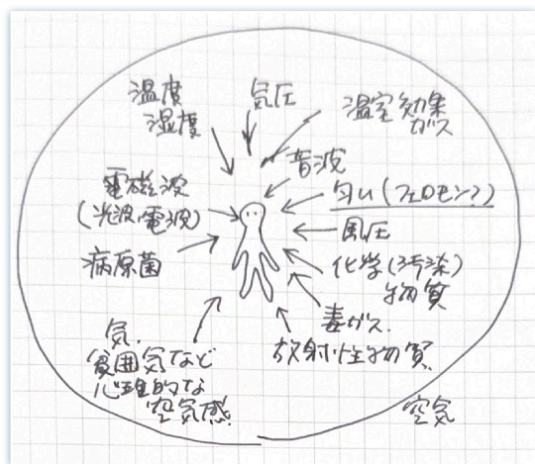 温度
湿度
気圧
温室効果
ガス
音波
電磁波
(光波・電波)
匂い(フェロモン?)
風圧
病原菌
化学(汚染)
物質
毒ガス
放射性物質
気、
雰囲気など
心理的な
空気感
空気